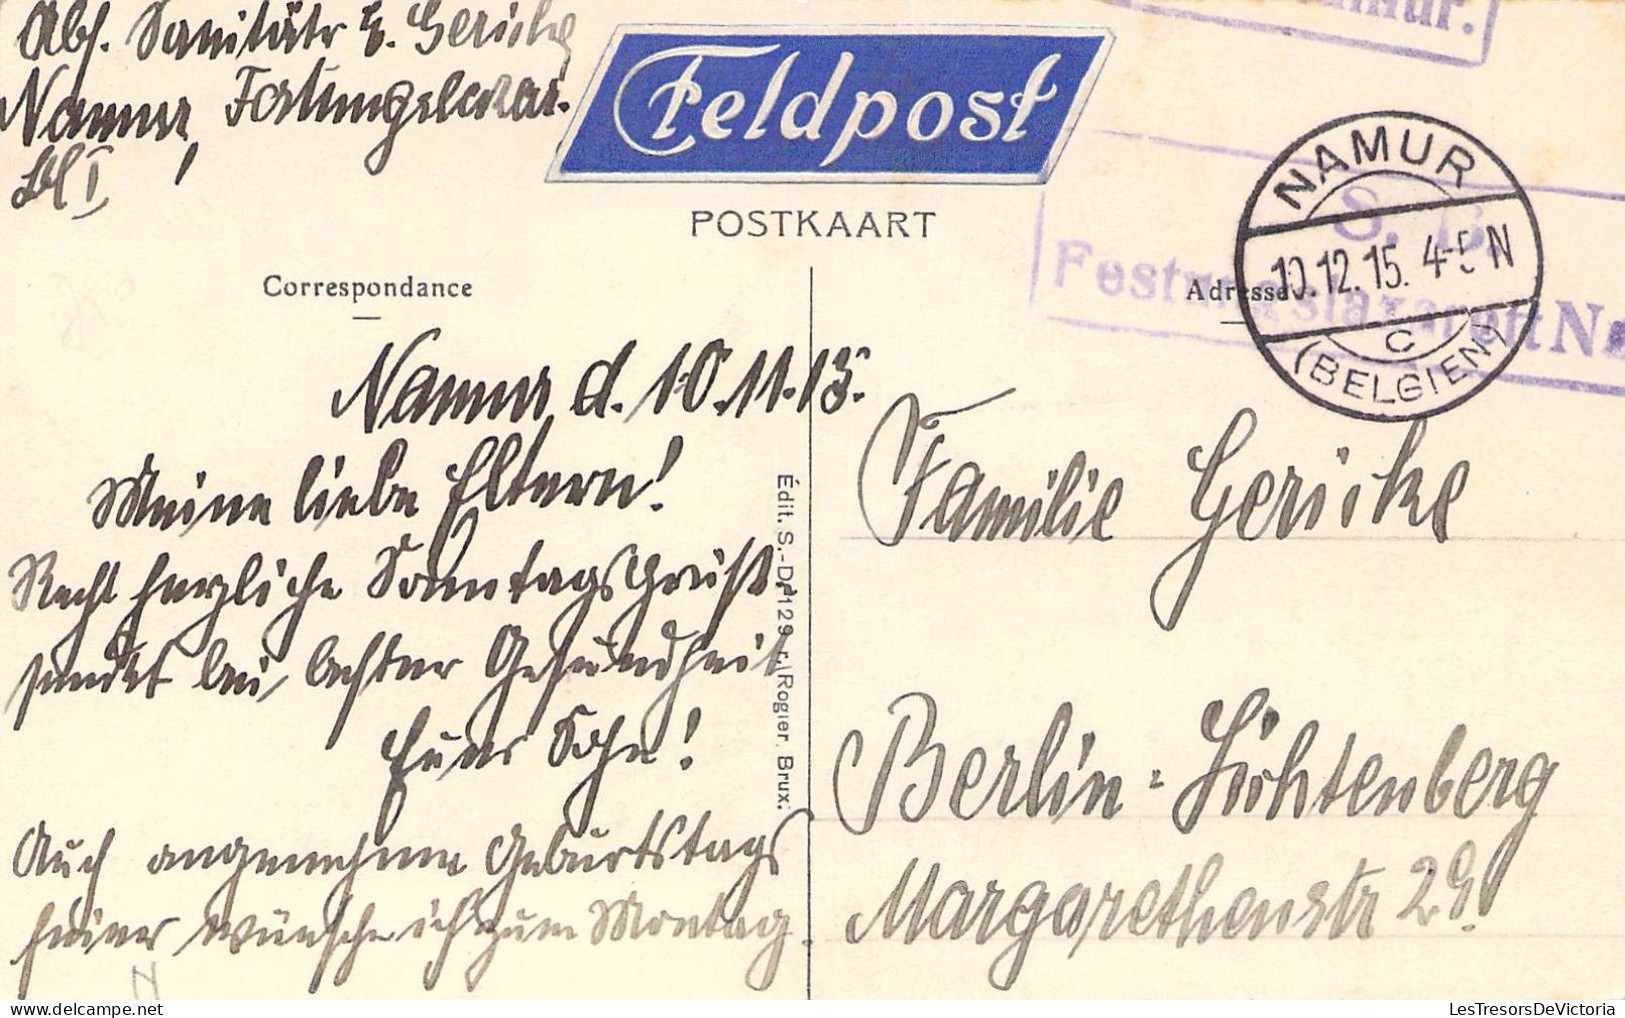 Abs. Sanitätr E. Gericke
Namur, Festungslazar.
Feldpost
POSTKAART
NAMUR
10.12.15. 4-5 N
C
(BELGIEN)
S. B.
Festungslazarett Na
Correspondance
Adresse
Namur, d. 10.11.15.
Meine liebe Eltern!
Recht herzliche Sonntagsgrüße
sendet bei bester Gesundheit
Euer Sohn!
Auch angenehme Geburtstags
feier wünsche ich zum Montag.
Édit. S.-D. 129 r. Rogier. Brux.
Familie Gericke
Berlin-Lichtenberg
Margarethenstr 29!
LesTresorsDeVictoria